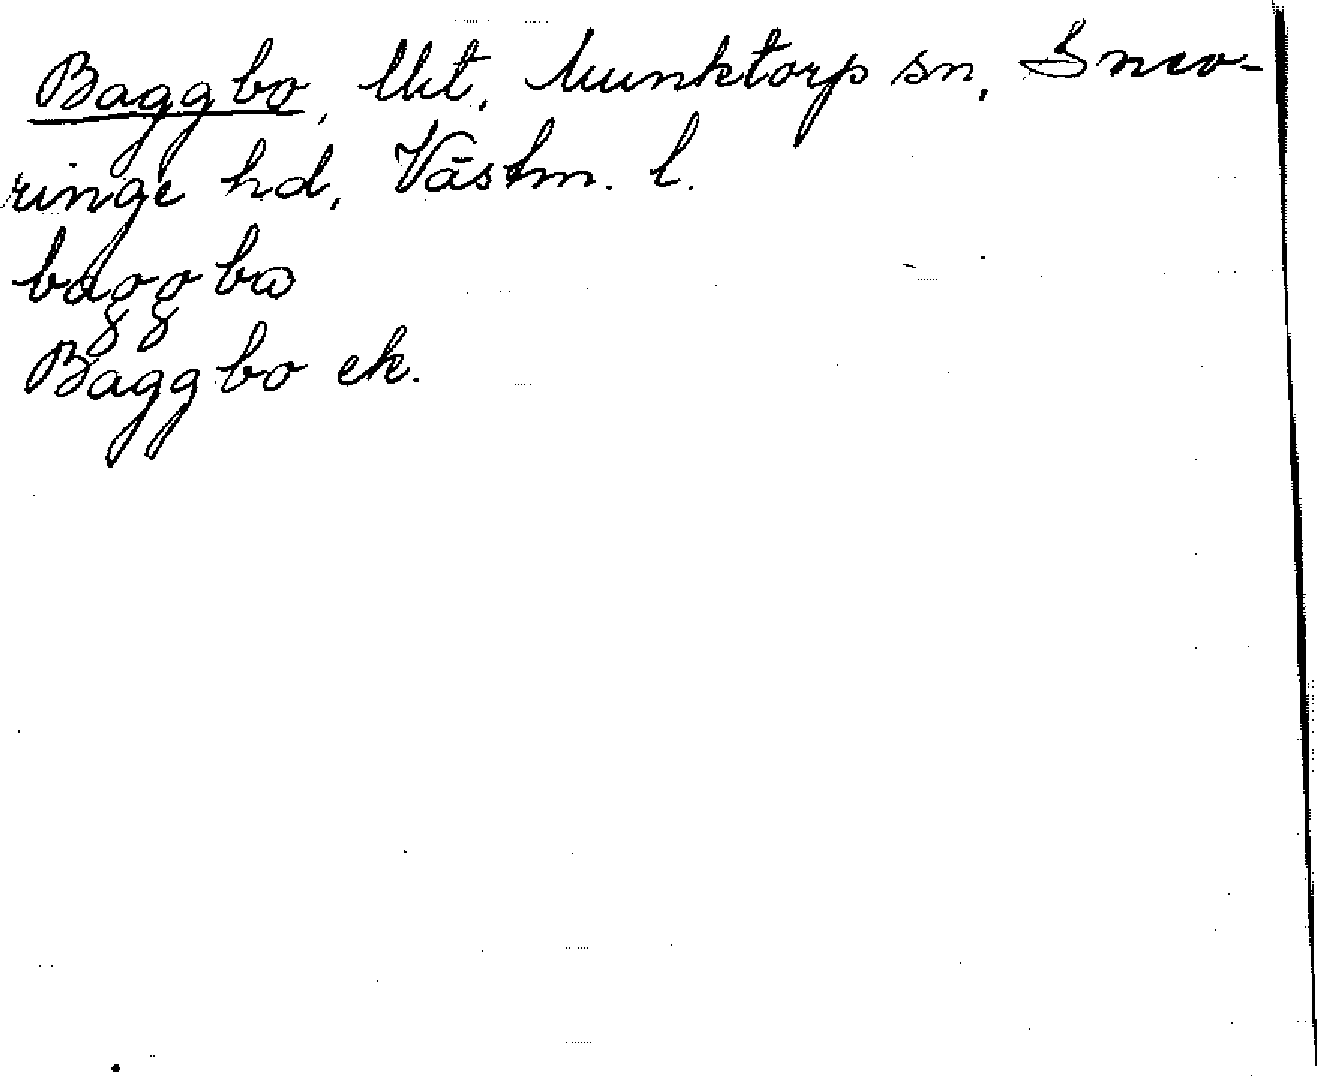 Baggbo, Ukt, Munktorp sn, Snev-
ringe hd, Västm. l.
baggbω
Baggbo ek.